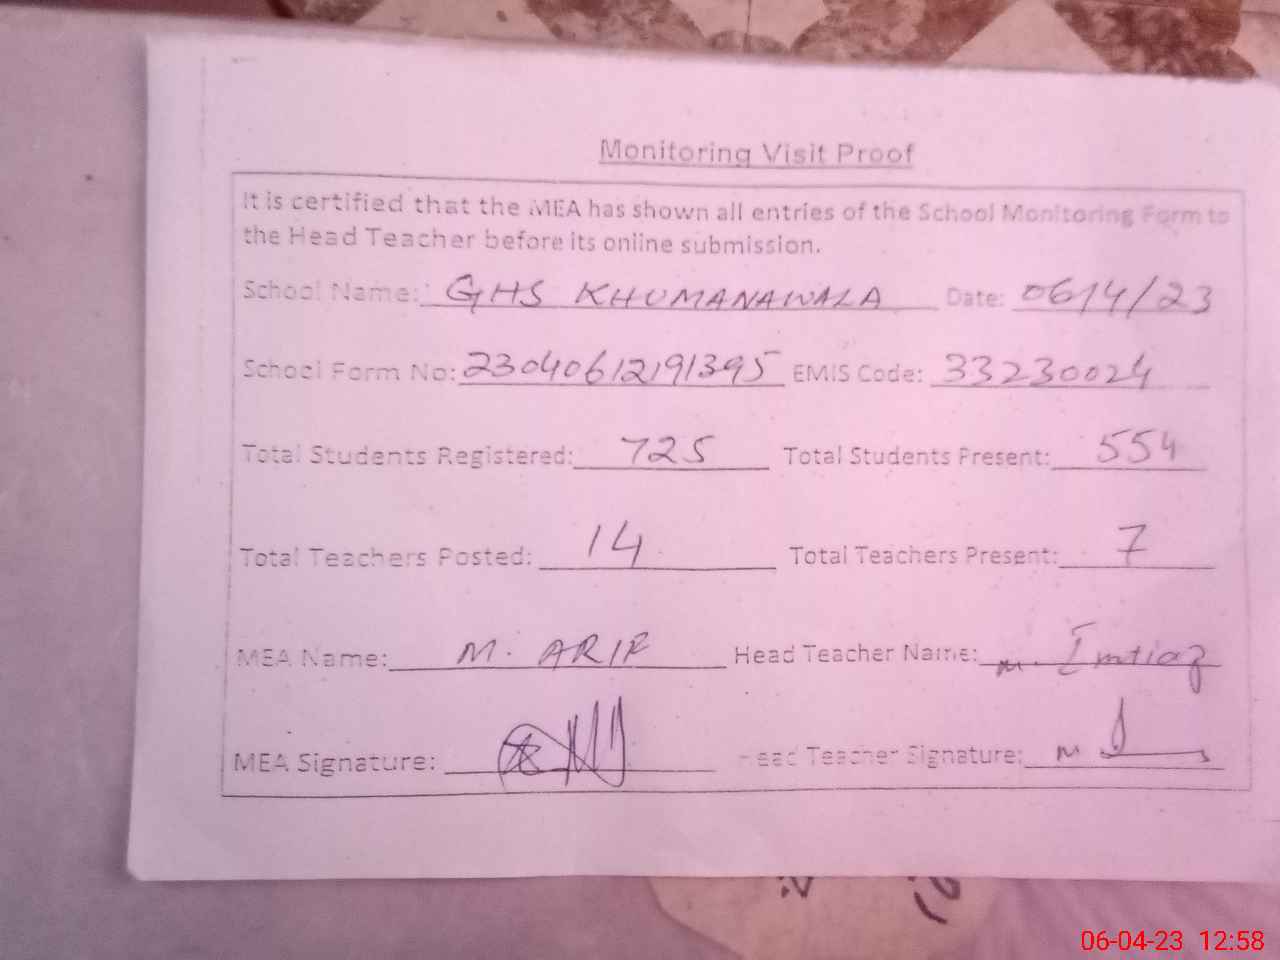 Monitoring Visit Proof
It is certified that the MEA has shown all entries of the School Monitoring Form to
the Head Teacher before its online submission.
School Name: GHS KHUMANAWALA Date: 06/4/23
School Form No: 23040612191395 EMIS Code: 33230024
Total Students Registered: 725 Total Students Present: 554
Total Teachers Posted: 14 Total Teachers Present: 7
MEA Name: M. ARIF Head Teacher Name: M. Imtiaz
MEA Signature: Head Teacher Signature:
06-04-23 12:58